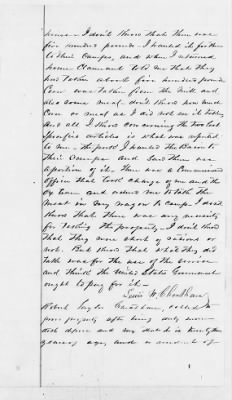 house - I don't know that there was
five hundred pounds - I hauled it for them
to their Camps, and when I returned
home Claimant told me that they
had taken about five hundred pounds
Corn was taken from the mill and
also some meal don't know how much
Corn or meal as I did not see it taken
And all I know concerning the
Specific articles is what was reported
to me. The I hauled the Bacon to
their Camps and saw them use
a portion of it. There was a Command
Officer that took charge of me and the
team and orders me to take the
meat in my wagon to Camp. I don't
know that there was any necessity
for taking the property - I don't know
that they were short of rations or
not. But know that what they did
take was for the use of the service
and think the United States Government
ought to pay for it -
Lewis W. Cheatham
Robert Taylor Cheatham, called to
prove property after being duly sworn
doth depose and say that he is twenty
years of age, and